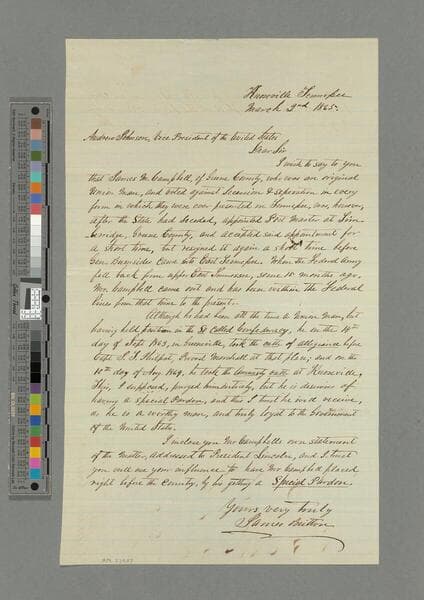 Knoxville Tennessee
March 3rd 1865.
Andrew Johnson, Vice President of the United States,
Dear Sir
I wish to say to you
that James M. Campbell, of Greene County, who was an original
Union Man, and voted against Secession & separation in every
form in which they were ever presented in Tennessee, was, however,
after the State had seceded, appointed Post Master at
Greene County, and accepted and appointment for
a short time, but resigned it again a short time before
Gen Burnside came into East Tennessee. When the Federal Army
fell back from upper East Tennessee, some 15 months ago,
Mr. Campbell came out and has been within the Federal
lines from that time to the present.
Although he had been all the time a Union Man, but
having held position in the So Called Confederacy, he on the 14th
day of Sept 1863, in Greeneville, took the oath of allegiance before
Capt. Provost Marshall at that place; and on the
10th day of Aug 1864, he took the amnesty oath at Knoxville,
I supposed, purged him but he is desirous of
having a Special Pardon, and this I trust he will receive,
as he is a worthy man, and truly loyal to the Government
of the United States.
I inclose you Mr Campbells own statement
of the matter, addressed to President Lincoln, and I trust
you will use your influence to have Mr Campbell placed
right before the Country, by his getting a Special Pardon.
Yours very truly
James Britton